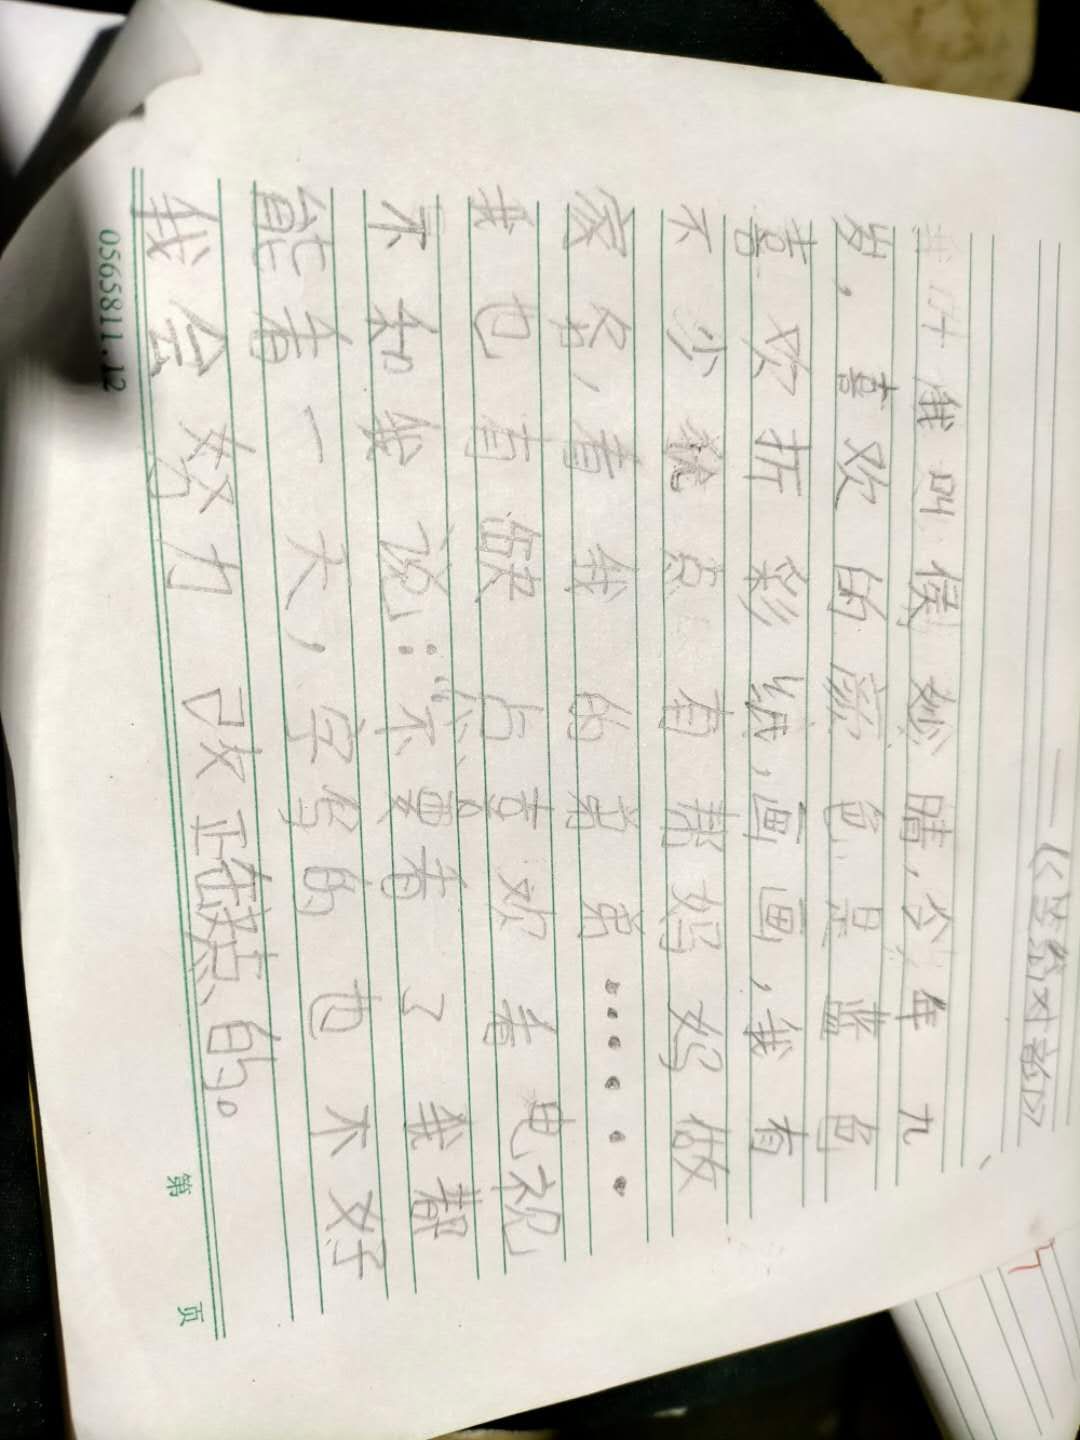 我叫侯妙晴,今年九
岁,喜欢的颜色是蓝色
喜欢折彩纸,画画,我有
不少优点有帮妈妈做
家务,看我的弟弟……
我也有缺点、喜欢看电视
不知我说:“不要看了我都
能看一天,字写的也不好
我会努力改正缺点、的。
0565811.12
第 页